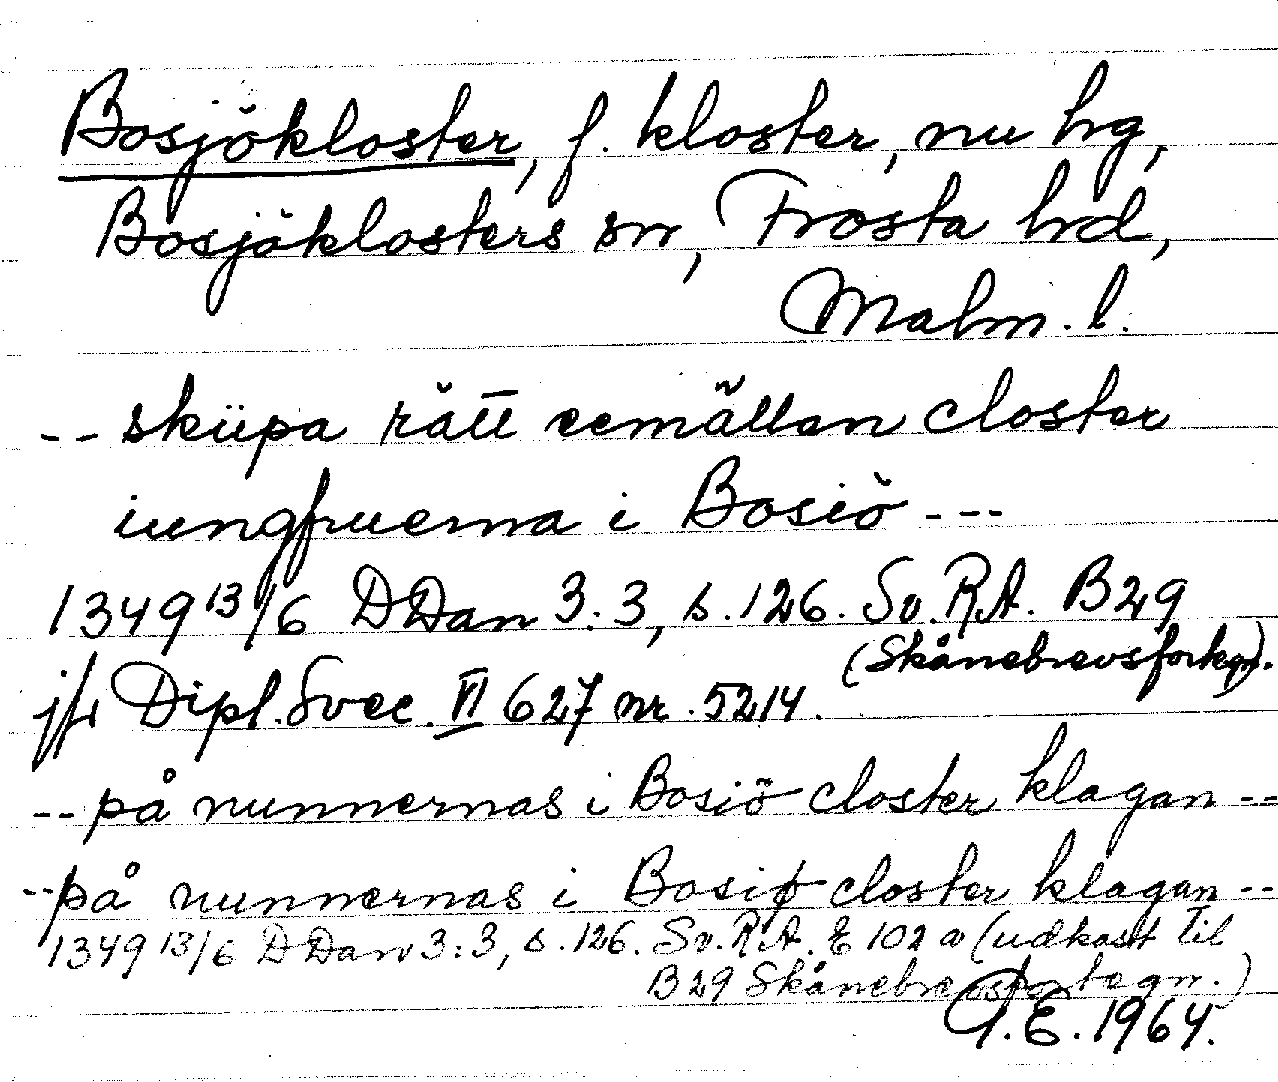 Bosjökloster, f. kloster, nu hg,
Bosjöklosters sn, Frosta hd,
Malm. l.
-- skiipa rätt eemällan closter
iungfruerna i Bosiö ---
1349 13/6 DDan 3:3, s. 126. Sv. R.A. B29
(Skånebrevsfortegn.)
jfr Dipl. Svec. VI 627 nr. 5214.
-- på nunnernas i Bosiö closter klagan --
-- på nunnernas i Bosiø closter klagan --
1349 13/6 DDan 3:3, s. 126. Sv. R.A. E 102 a (udkast til
B29 Skånebrevsfortegn.)
G.E. 1964.